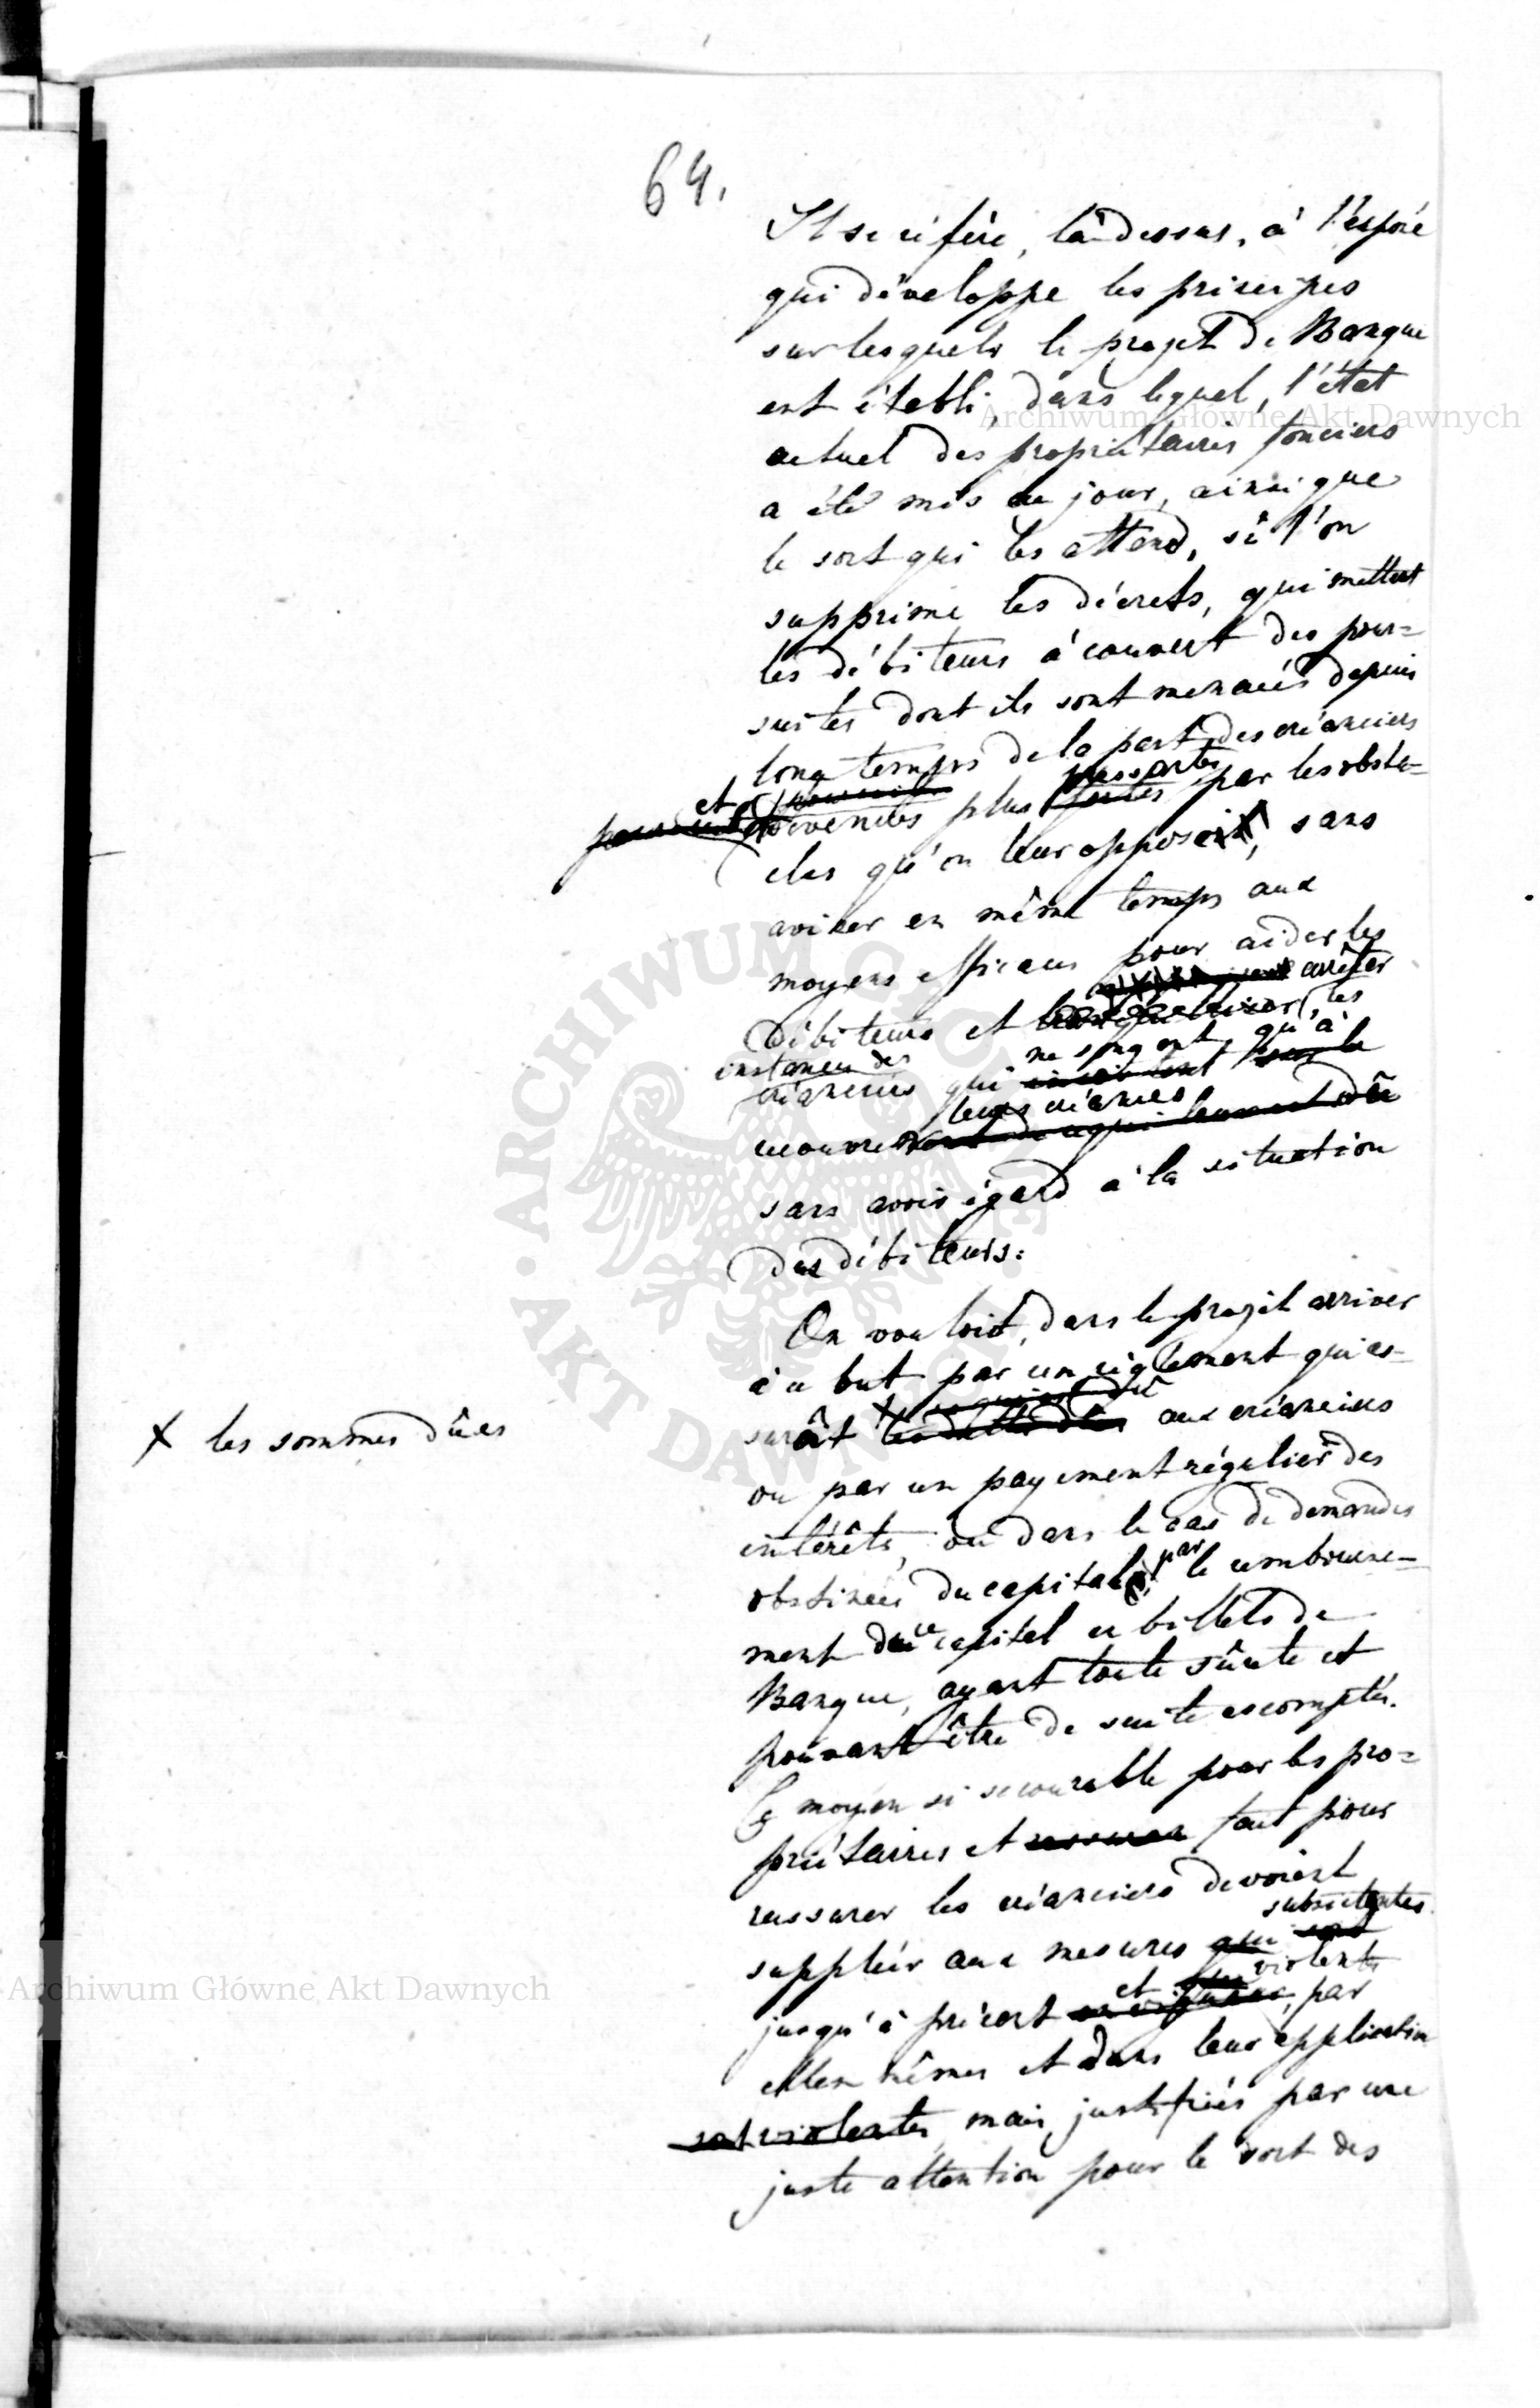 64.
Il se réfère, là-dessus, à l'exposé
qui développe les principes
sur lesquels le projet de Banque
est établi, dans lequel, l'état
actuel des propriétaires fonciers
a été mis au jour, ainsi que
le sort qui les attend, si l'on
supprime les décrets, qui mettent
les débiteurs à couvert des pour=
suites dont ils sont menacés depuis
long temps de la part des créanciers
et devenues plus pressantes par les obsta=
cles qu'on leur opposoit, sans
aviser en même temps aux
moyens efficaces pour aider les
débiteurs et arrêter les
instances des
créanciers qui ne songent qu'à
recouvrer leurs créances
sans avoir égard à la situation
des débiteurs.
On vouloit, dans le projet arriver
à ce but par un règlement qui as-
surât X aux créanciers
X les sommes dûes
ou par un payement régulier des
intérêts, ou dans le cas de demandes
obstinées du capital, par le rembourse-
ment du capital en billets de
Banque, ayant toute sûreté et
pouvant être de suite escomptés.
Ce moyen si secourable pour les pro=
priétaires et fait pour
rassurer les créanciers devoient
suppléer aux mesures subsistantes
jusqu'à présent et violentes par
elles mêmes et dans leur application
mais justifiées par une
juste attention pour le sort des
Archiwum Główne Akt Dawnych
Archiwum Główne Akt Dawnych
ARCHIWUM GŁÓWNE · AKT DAWNYCH ·